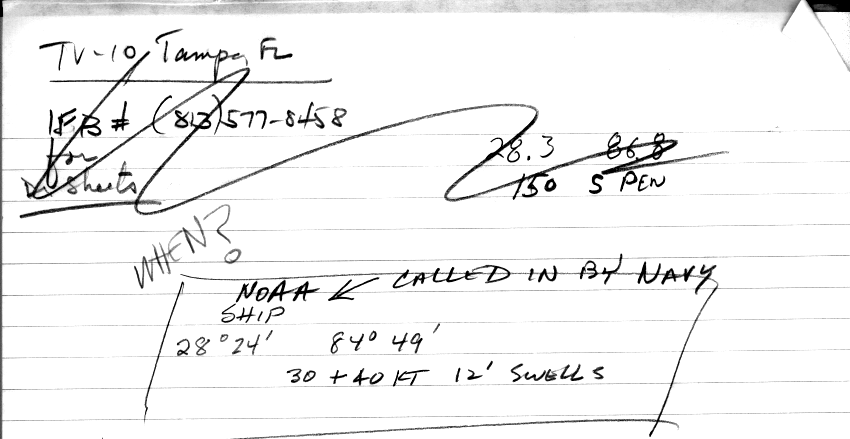 TV-10, Tampa, FL
IFB # (813) 577-8458
for
Dr. Sheets
28.3 86.8
150 S PEN
WHEN?
NOAA ← CALLED IN BY NAVY
SHIP
28° 24' 84° 49'
30 + 40 KT 12' SWELLS